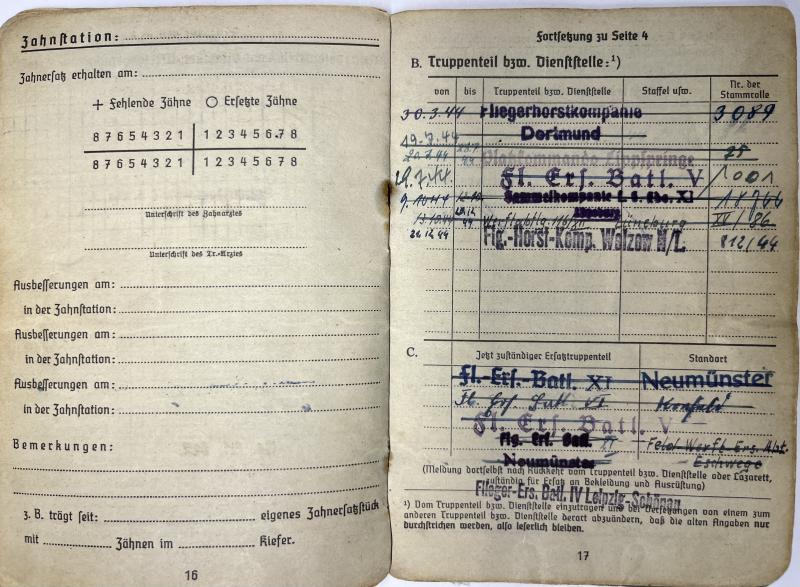 Zahnstation:
Zahnersatz erhalten am:
+ Fehlende Zähne O Ersetzte Zähne
8 7 6 5 4 3 2 1 1 2 3 4 5 6 7 8
8 7 6 5 4 3 2 1 1 2 3 4 5 6 7 8
Unterschrift des Zahnarztes
Unterschrift des Tr.-Arztes
Ausbesserungen am:
in der Zahnstation:
Ausbesserungen am:
in der Zahnstation:
Ausbesserungen am:
in der Zahnstation:
Bemerkungen:
z. B. trägt seit: eigenes Zahnersatzstück
mit Zähnen im Kiefer.
16
Fortsetzung zu Seite 4
B. Truppenteil bzw. Dienststelle:¹)
von bis Truppenteil bzw. Dienststelle Staffel usw. Nr. der Stammrolle
30.3.44 Fliegerhorstkompanie 3089
19.7.44 Dortmund
20.7.44 Lippspringe 75
Fl. Ers. Batl. V 1001
9.10.44 Sammelkompanie XI 18766
13.10.44 Lüneburg XII/86
21.12.44 Flg.-Horst-Komp. Welzow N/L. 812/44
C. Jetzt zuständiger Ersatztruppenteil Standort
Fl.-Ers.-Batl. XI Neumünster
Fl. Ers. Batl. VI
Fl. Ers. Batl. V
Flg. Ers. Batl. XI Feld Werft Ers. Abt.
Neumünster Eschwege
(Meldung dortselbst nach Rückkehr vom Truppenteil bzw. Dienststelle oder Lazarett,
zuständig für Ersatz an Bekleidung und Ausrüstung)
Flieger-Ers. Batl. IV Leipzig-Schönau
¹) Vom Truppenteil bzw. Dienststelle einzutragen und bei Versetzungen von einem zum
anderen Truppenteil bzw. Dienststelle derart abzuändern, daß die alten Angaben nur
durchstrichen werden, also leserlich bleiben.
17